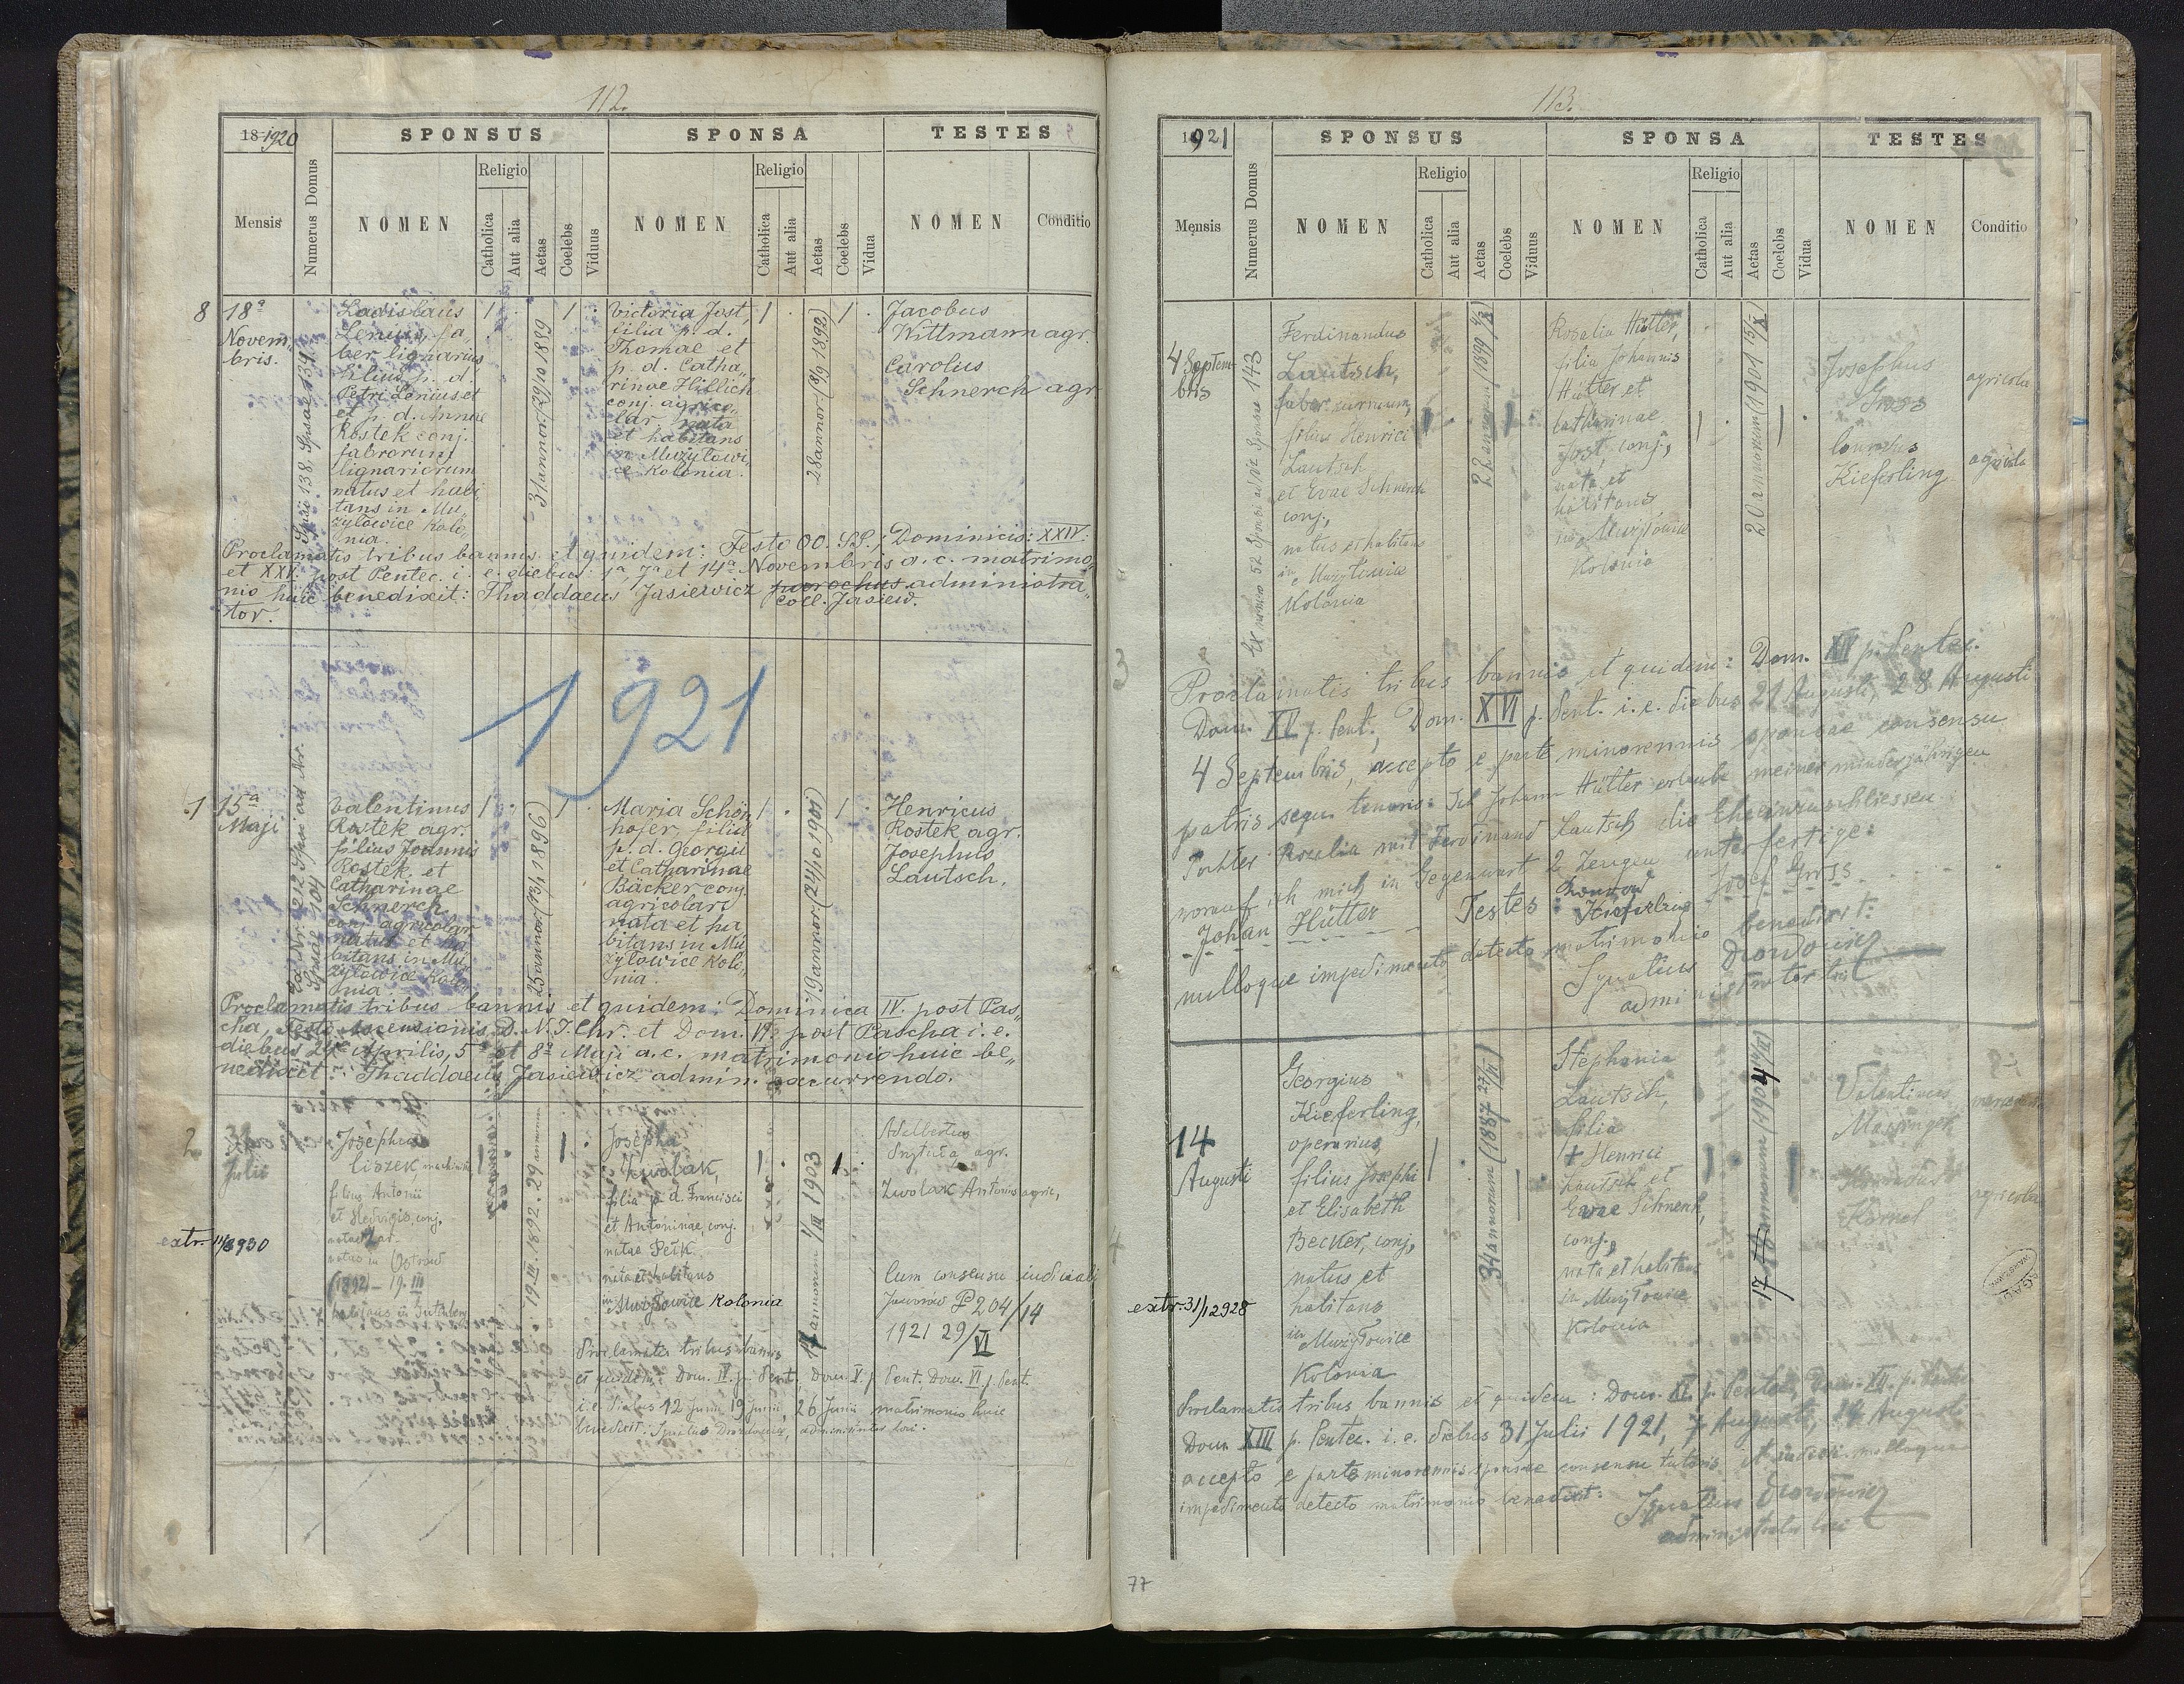 112.
18-1920
SPONSUS
SPONSA
TESTES
Mensis
Numerus Domus
NOMEN
Religio
Catholica
Aut alia
Aetas
Coelebs
Viduus
NOMEN
Religio
Catholica
Aut alia
Aetas
Coelebs
Vidua
NOMEN
Conditio
8
18ª
Novem„
bris.
Spsi 138. Spsae 139.
Ladislaus
Lenius, fa„
ber lignarius
filius p. d.
Petri Lenius et
et p. d. Annae
Rostek conj.
fabrorum
lignariorum
natus et habi„
tans in Mu„
żyłowice Kolo„
nia.
1
31 annor. (29/10 1889
1
Victoria Jost,
filia p. d.
Thomae et
p. d. Catha„
rinae Hillich
conj. agrico„
lar. nata
et habitans
in Mużyłowi„
ce Kolonia.
1
28 annor. (8/9 1892)
1
Jacobus
Wittmann agr.
Carolus
Schnerch agr.
Proclamatis tribus bannis et quidem: Festo OO. SS.; Dominicis: XXIV.
et XXV. post Pentec. i. e. diebus: 1ª, 7ª et 14ª Novembris a. c. matrimo„
nio huic benedixit: Thaddaeus Jasiewicz parochus administra„
tor.
coll. Jasiew.
1921
1
15ª
Maji
Ex Nr. 212 Spsus ad Nr.
Spsae 104
Valentinus
Rostek agr.
filius Joannis
Rostek et
Catharinae
Schnerch
conj. agricolar.
natus et ha„
bitans in Mu„
żyłowice Kolo„
nia.
1
25 annor. (13/1 1896)
1
Maria Schön„
hofer, filia
p. d. Georgii
et Catharinae
Bäcker conj.
agricolar.
nata et ha„
bitans in Mu„
żyłowice Kolo„
nia.
1
19 annor. (24/10 1901)
1
Henricus
Rostek agr.
Josephus
Lautsch.
Proclamatis tribus bannis et quidem: Dominica IV. post Pas„
cha, Festo Ascensionis D. N. J. Chr. et Dom. VI. post Pascha i. e.
diebus 24ª Aprilis, 5ª et 8ª Maji a. c. matrimonio huic be„
nedixit: Thaddaeus Jasiewicz admin. excurrendo.
2
Julii
extr. 11/8 930
Josephus
Liszek,
filius Antonii
et Hedvigis, conj.
natus in Ostrów
(1892) - 19. III
1
19. III. 1892. 29 annorum
1
Josepha
Kwolak,
filia p. d. Francisci
et Antoninae, conj.
natae Pełk
nata et habitans
in Mużyłowice Kolonia
1
17 annorum 1/III 1903
1
Adalbertus
agr.
Zwolak Antonius agric,
Cum consensu iudiciali
Jaworów P 204/14
1921 29/VI
Proclamatis tribus bannis
et quidem: Dom. IV. p. Pent., Dom. V. p. Pent. Dom. VI p. Pent.
i. e. diebus 12 Junii 19 Junii, 26 Junii matrimonio huic
benedixit: Ignatius Drozdowicz, administrator loci.
113.
1921
SPONSUS
SPONSA
TESTES
Mensis
Numerus Domus
NOMEN
Religio
Catholica
Aut alia
Aetas
Coelebs
Viduus
NOMEN
Religio
Catholica
Aut alia
Aetas
Coelebs
Vidua
NOMEN
Conditio
3
4 Septem-
bris
Ex nomo 52 Sponsi ad Nr Sponsae 143
Ferdinandus
Lautsch,
faber currium,
filius Henrici
Lautsch
et Evae Schnerch
conj.,
natus et habitans
in Mużyłowice
Kolonia
1
22 annorum (1899 9/X)
1
Rosalia Hütter,
filia Johannis
Hütter et
Catharinae
Jost, conj.,
nata et
habitans
in Mużyłowice
Kolonia
1
20 annorum (1901 15/X)
1
Josephus
Gross
agricola
Conradus
Kieferling
agricola
Proclamatis tribus bannis et quidem: Dom. XIV p. Pentec.
Dom. XV p. Pent., Dom. XVI p. Pent. i. e. diebus 21 Augusti, 28 Augusti
4 Septembris, accepto e parte minorennis sponsae consensu
patris sequ. tenoris: Ich Johann Hütter erlaube meiner minderjährigen
Tochter Rozalia mit Ferdinand Lautsch die Ehe einzuschliessen
worauf ich mich in Gegenwart 2 Zeugen unterfertige:
Johan Hütter
Testes: Konrad Kieferling
Josef Gross
nulloque impedimento detecto matrimonio benedixit:
Ignatius Drozdowicz
administrator loci
4
14
Augusti
extr. 31/12 928
Georgius
Kieferling,
operarius,
filius Josephi
et Elisabeth
Becker, conj.,
natus et
habitans
in Mużyłowice
Kolonia
1
34 annorum (1887 27/VI)
1
Stephania
Lautsch,
filia
+ Henrici
Lautsch et
Evae Schnerch,
conj.,
nata et habitans
in Mużyłowice
Kolonia
1
17 annorum (1904
1
Valentinus
Massinger
Konradus
Kornel
agricola
Proclamatis tribus bannis et quidem: Dom. XI p. Pentec., Dom. XII. p. Pentec.
Dom. XIII p. Pentec. i. e. diebus 31 Julii 1921, 7 Augusti, 14 Augusti
accepto e parte minorennis sponsae consensu tutoris et iudicii nulloque
impedimento detecto matrimonio benedixit:
Ignatius Drozdowicz
administrator loci
77